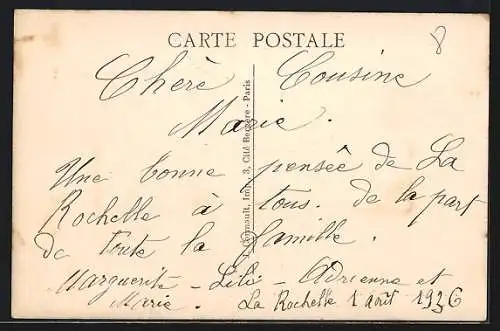 CARTE POSTALE
8
Chère Cousine
Marie.
Une bonne pensée de La
Rochelle à tous. de la part
de toute la famille.
Marguerite - Lili - Adrienne et
Marie. La Rochelle 1 août 1926
Imp., 3, Cité Bergère - Paris